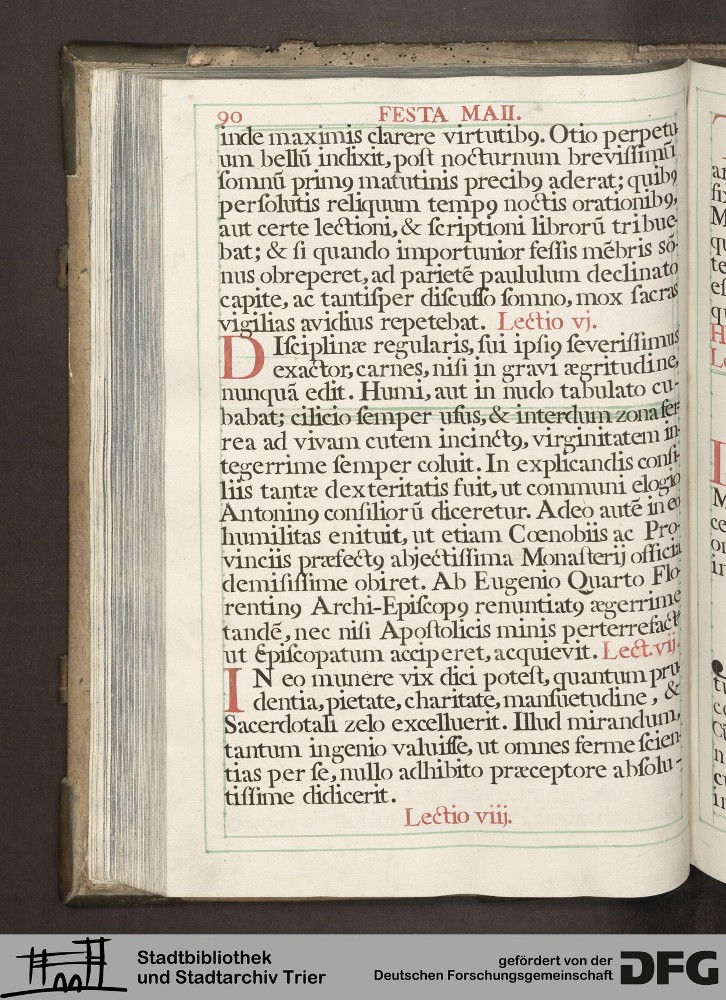 90 FESTA MAII.
inde maximis clarere virtutibꝰ. Otio perpetu
um bellū indixit, post nocturnum brevissimū
somnū primꝰ matutinis precibꝰ aderat; quibꝰ
persolutis reliquum tempꝰ noctis orationibꝰ,
aut certe lectioni, & scriptioni librorū tribue-
bat; & si quando importunior fessis mēbris só-
nus obreperet, ad parietē paululum declinato
capite, ac tantisper discusso somno, mox sacras
vigilias avidius repetebat. Lectio vj.
DIsciplinæ regularis, sui ipsiꝰ severissimus
exactor, carnes, nisi in gravi ægritudine,
nunquā edit. Humi, aut in nudo tabulato cu-
babat; cilicio semper usus, & interdum zona fer-
rea ad vivam cutem incinctꝰ, virginitatem in-
tegerrime semper coluit. In explicandis consi-
liis tantæ dexteritatis fuit, ut communi elogio
Antoninꝰ consiliorū diceretur. Adeo autē in eo
humilitas enituit, ut etiam Cœnobiis ac Pro-
vinciis præfectꝰ abjectissima Monasterij officia
demississime obiret. Ab Eugenio Quarto Flo-
rentinꝰ Archi-Episcopꝰ renuntiatꝰ ægerrime
tandē, nec nisi Apostolicis minis perterrefactꝰ
ut Episcopatum acciperet, acquievit. Lect. vij.
IN eo munere vix dici potest, quantum pru-
dentia, pietate, charitate, mansuetudine, &
Sacerdotali zelo excelluerit. Illud mirandum,
tantum ingenio valuisse, ut omnes ferme scien-
tias per se, nullo adhibito præceptore absolu-
tissime didicerit.
Lectio viij.
Stadtbibliothek
und Stadtarchiv Trier
gefördert von der
Deutschen Forschungsgemeinschaft
DFG